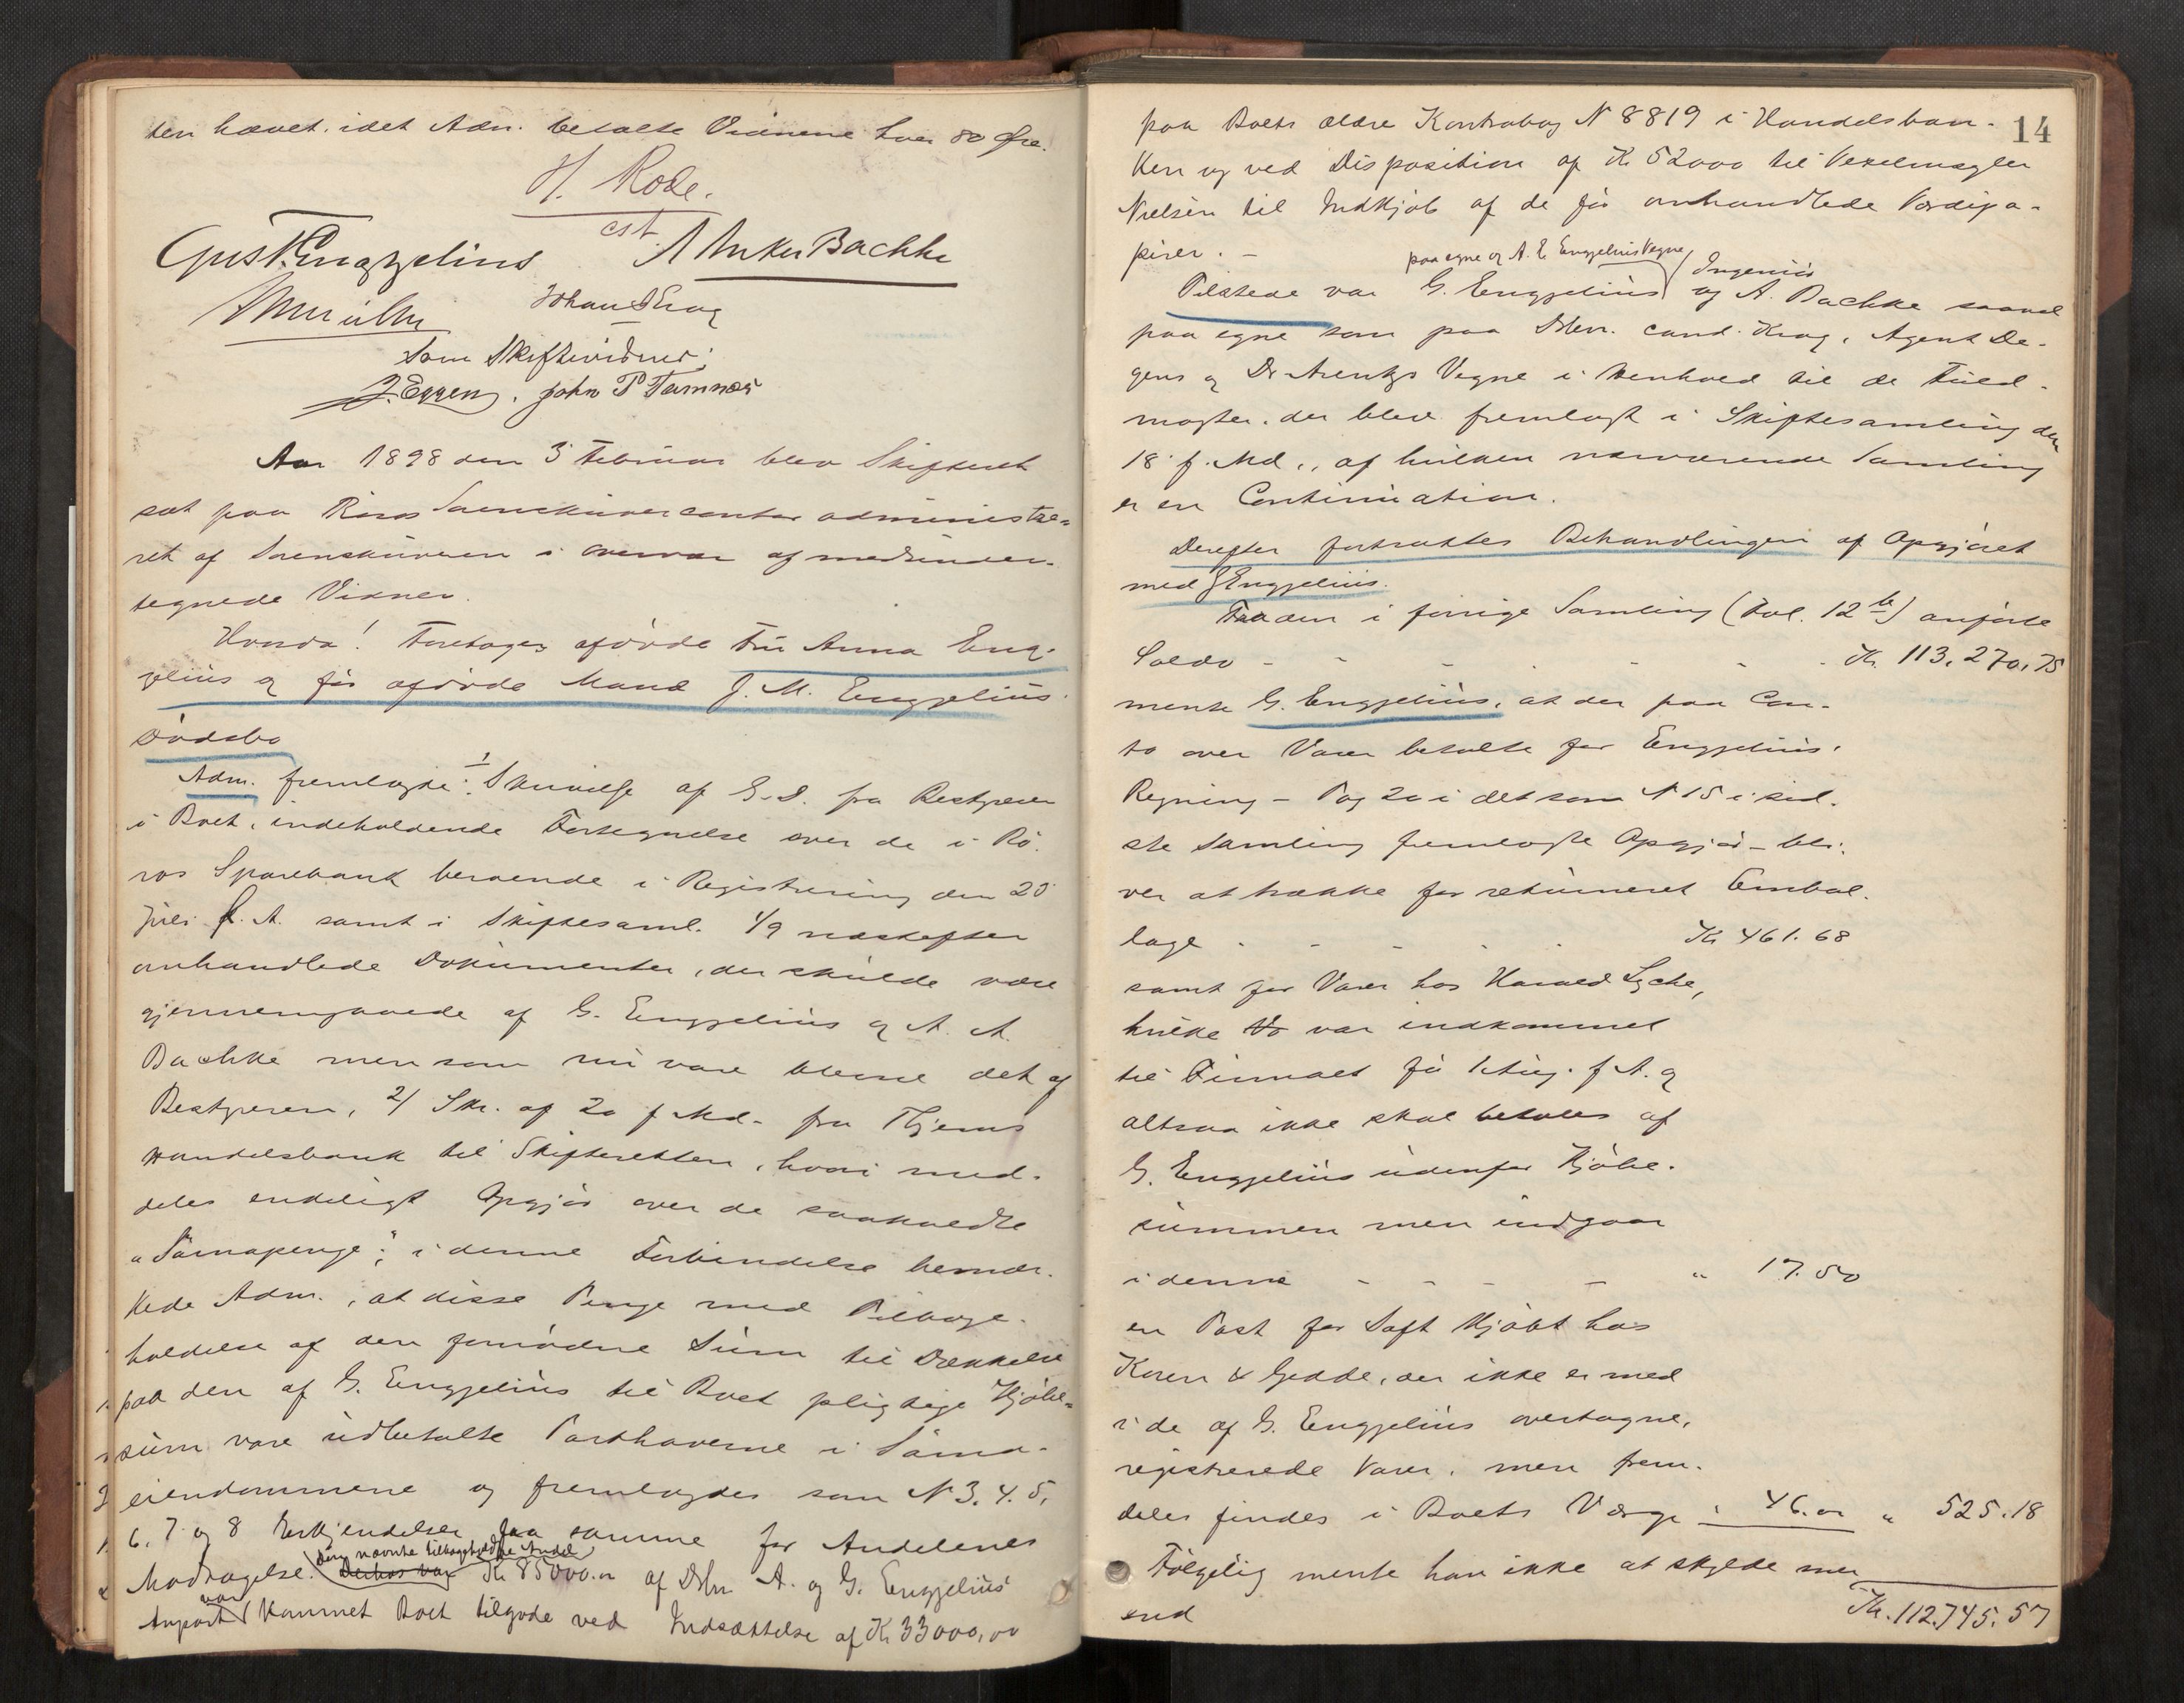 ten hævet, idet Adm. betalte Vidnerne hver 80 Øre.
H. Rode.
cst.
Gust. Engzelius A Anker Bachke
Johan Krog
Som Skiftevidner:
J. Eggen, John P Tamnes
Aar 1898 den 3 Februar blev Skifteret
sat paa Röros Sorenskrivercontor administre-
ret af Sorenskriveren i Overvær af medunder-
tegnede Vidner.
Hvorda! Foretoges afdøde Fru Anna Eng-
zelius og før afdøde Mand J. M. Engzelius
Dødsbo
Adm. fremlagde: 1 Skrivelse af G. D. fra Bestyreren
i Boet, indeholdende Fortegnelse over de i Rö-
ros Sparebank beroende i Registrering den 20
Juli f. A. samt i Skiftesaml. 1/9 næstefter
omhandlede Dokumenter, der skulde være
gjennemgaaede af G. Engzelius og A. A.
Bachke men som nu vare blevne det af
Bestyreren, 2/ Skr. af 20 f. Md. fra Thjems
Handelsbank til Skifteretten, hvori med-
deles endeligt Opgjør over de saakaldte
"Särnapenge"; i denne Forbindelse bemær-
kede Adm., at disse Penge med Tilbage-
holdelse af den fornødne Sum til Dækkelse
paa den af G. Engzelius til Boet pligtige Kjøbe-
sum vare udbetalte Parthaverne i Särna-
eiendommene og fremlagdes som N 3. 4. 5,
6. 7 og 8 Erkjendelser fra samme for Andelenes
den nævnte tilbageholdte Andel
Modtagelse. Derhos var Kr 85000.00 af DHrr A. og G. Engzelius
var
Anpart kommet Boet tilgode ved Indsættelse af Kr 33000,00
14
paa Boets ældre Kontrabog N 8819 i Handelsban-
ken og ved Disposition af Kr 52000 til Vexelmægler
Nielsen til Indkjøb af de før omhandlede Værdipa-
pirer. -
paa egne og A. E. Engzelius Vegne Ingeniør
Tilstede var G. Engzelius og A. Bachke saavel
paa egne som paa DHrr. cand. Krog, Agent De-
gens og Dr Arentz's Vegne i Henhold til de Fuld-
magter, der blev fremlagt i Skiftesamling den
18 f. Md., af hvilken nærværende Samling
er en Continuation.
Derefter fortsattes Behandlingen af Opgjøret
med G Engzelius.
Fra den i forrige Samling (Fol. 12 b) anførte
Saldo - - - - - - Kr. 113,270,75
mente G. Engzelius, at der paa Con-
to over Varer betalte for Engzelius'
Regning - Pag 20 i det som N 15 i sid-
ste Samling fremlagte Opgjør - bli-
ver at trække for returneret Embal-
lage - - - - - Kr 461.68
samt for Varer hos Harald Lyche,
hvilke var indkommet
til Firmaet før 1 Aug. f A. og
altsaa ikke skal betales af
G. Engzelius udenfor Kjøbe-
summen men indgaar
i denne - - - - " 17.50
en Post for Saft kjøbt hos
Koren & Gedde, der ikke er med
i de af G. Engzelius overtagne,
registrerede Varer, men frem-
deles findes i Boets Værge " 46.00 " 525.18
Følgelig mente han ikke at skylde mer
end Kr. 112.745.57